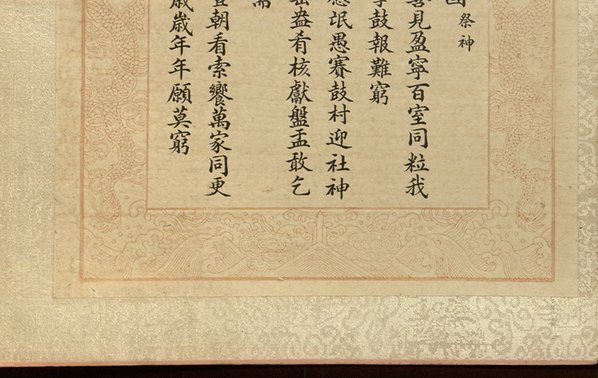 祭神
見盈寧百室同粒我
鼓報難窮
氓愚賽鼓村迎社神
盎肴核獻盤盂敢乞
朝看索饗萬家同更
歲歲年年願莫窮